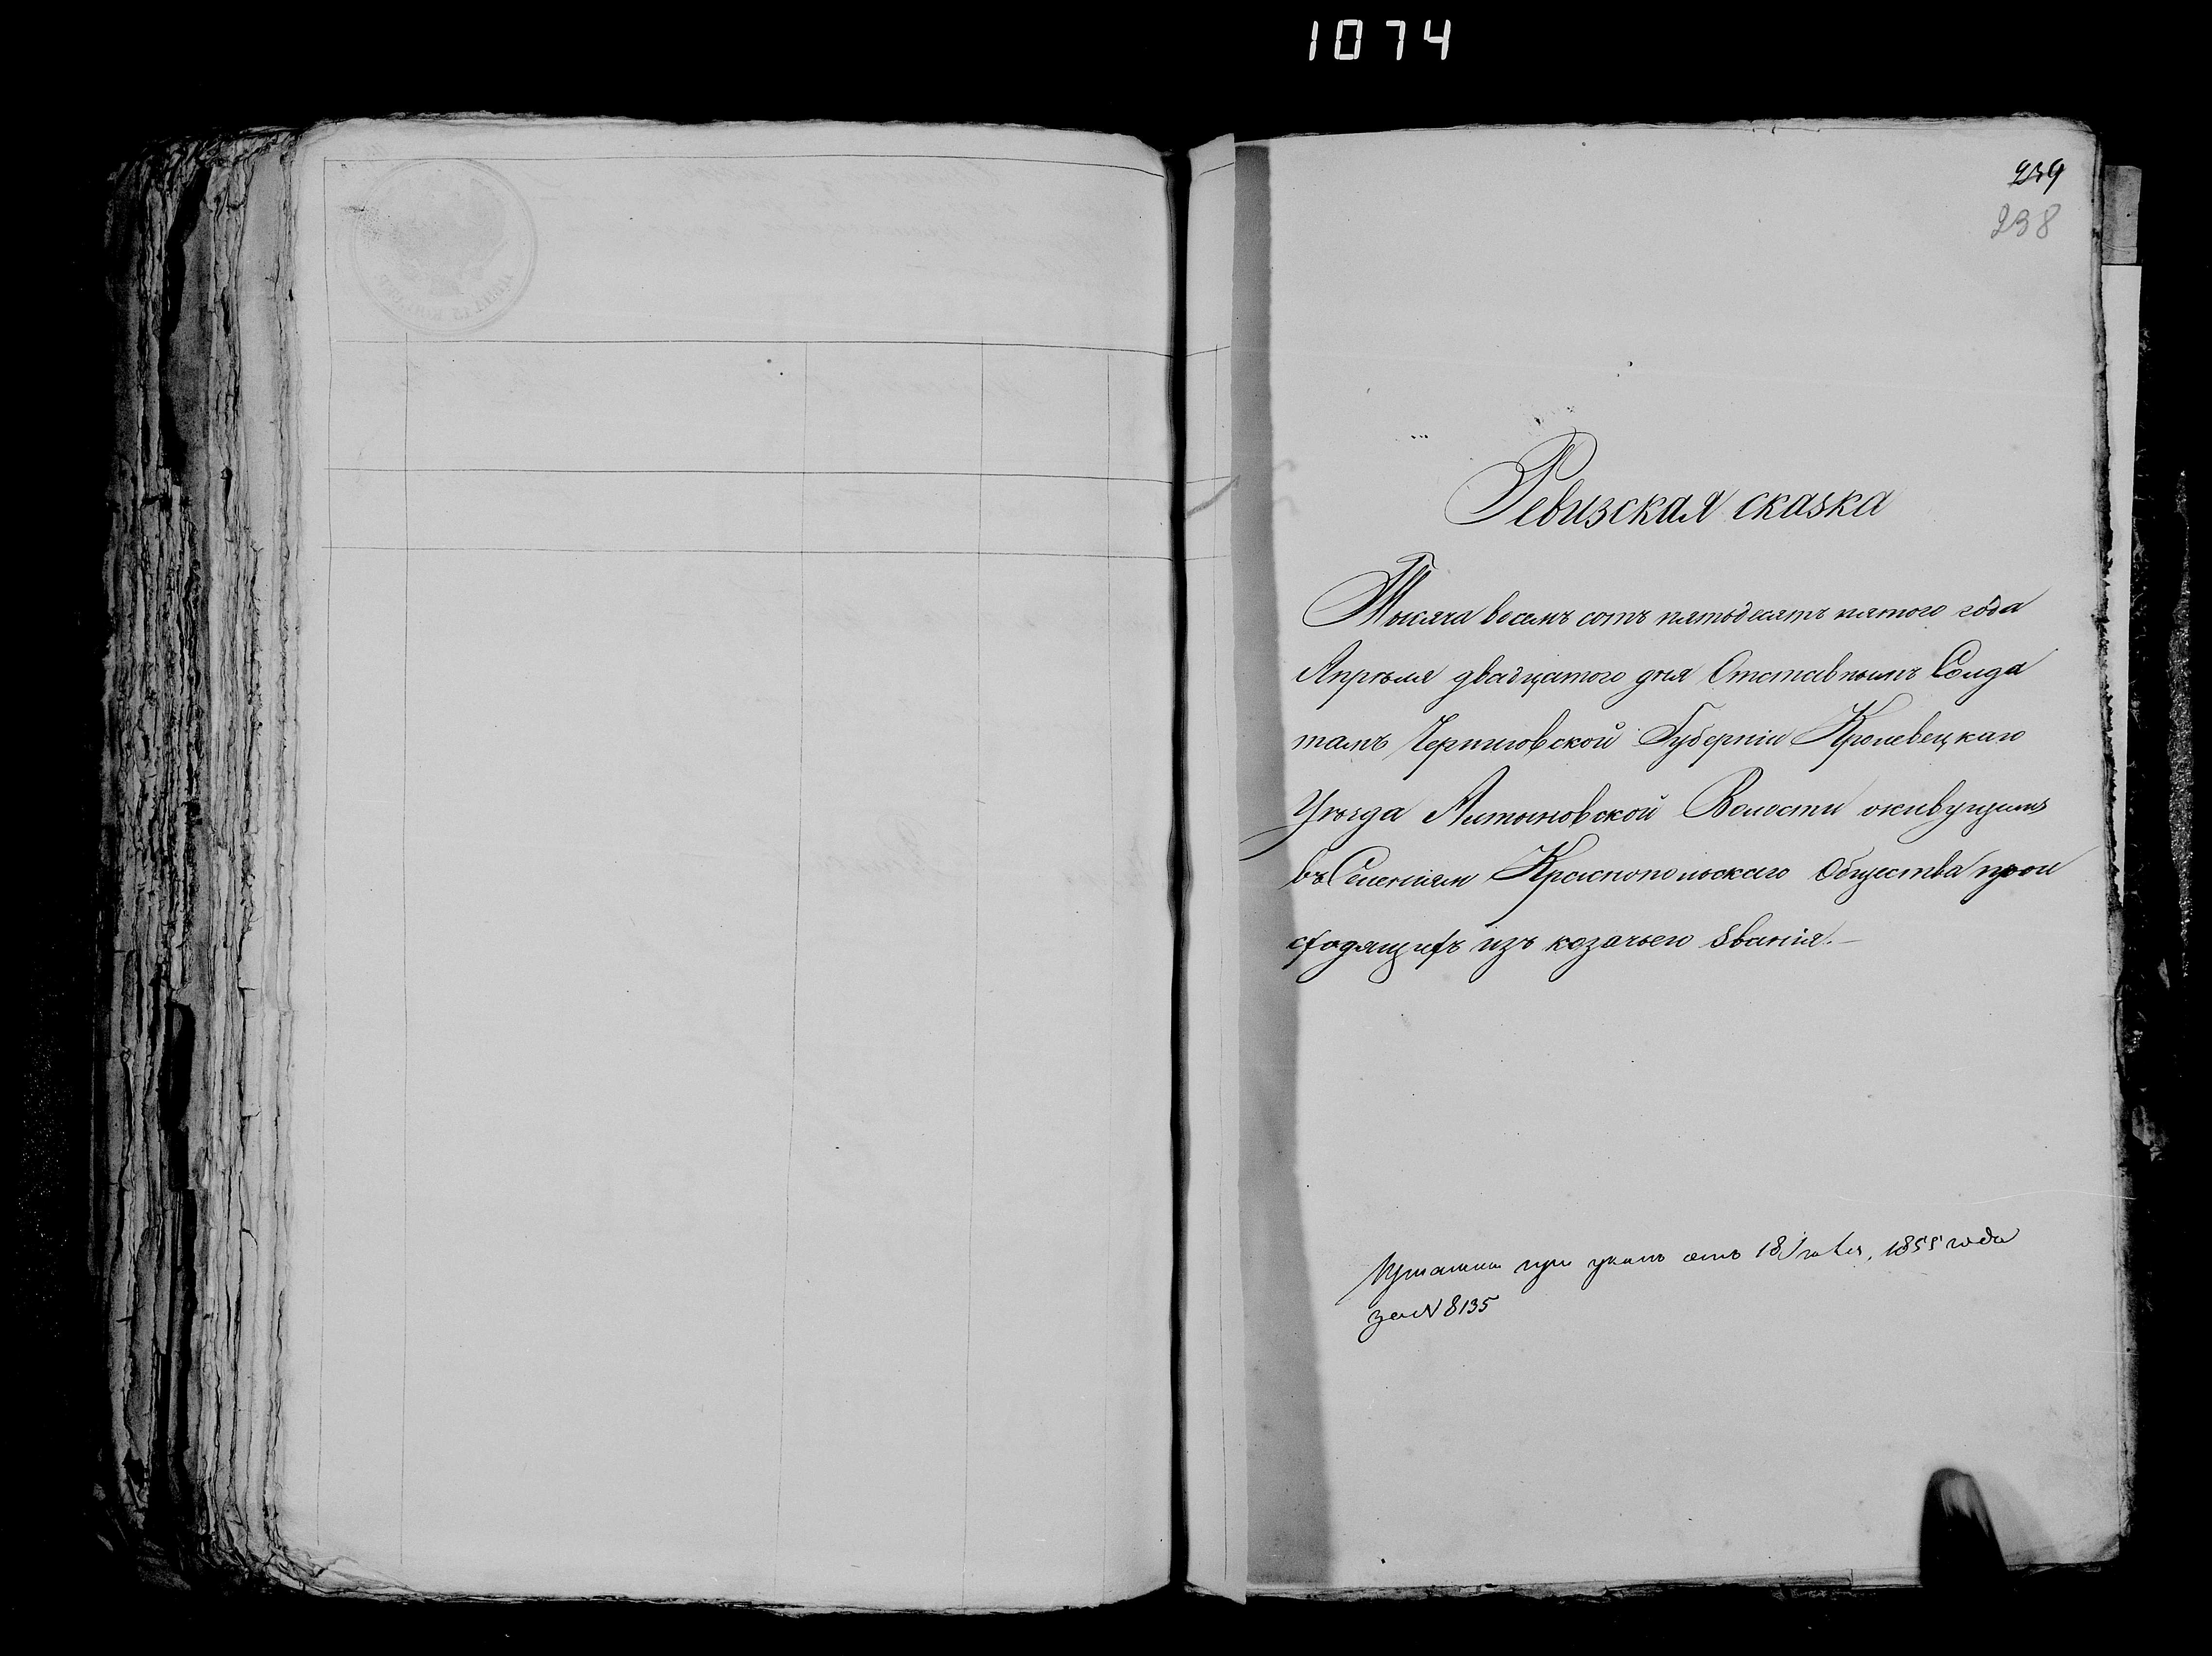 1074
239
238
Ревизская сказка
Тысяча восемъ сотъ пятьдесятъ пятого года
Апрѣля двадцатого дня Отставнымъ Солда
тамъ Черниговской Губерніи Кролевецкаго
Уѣзда Алтыновской Волости живущимъ
въ Селеніям Краснопольскаго Общества прои
сходящихъ изъ козачьего званія.—
при указѣ отъ 18 1855 года
за N 8135